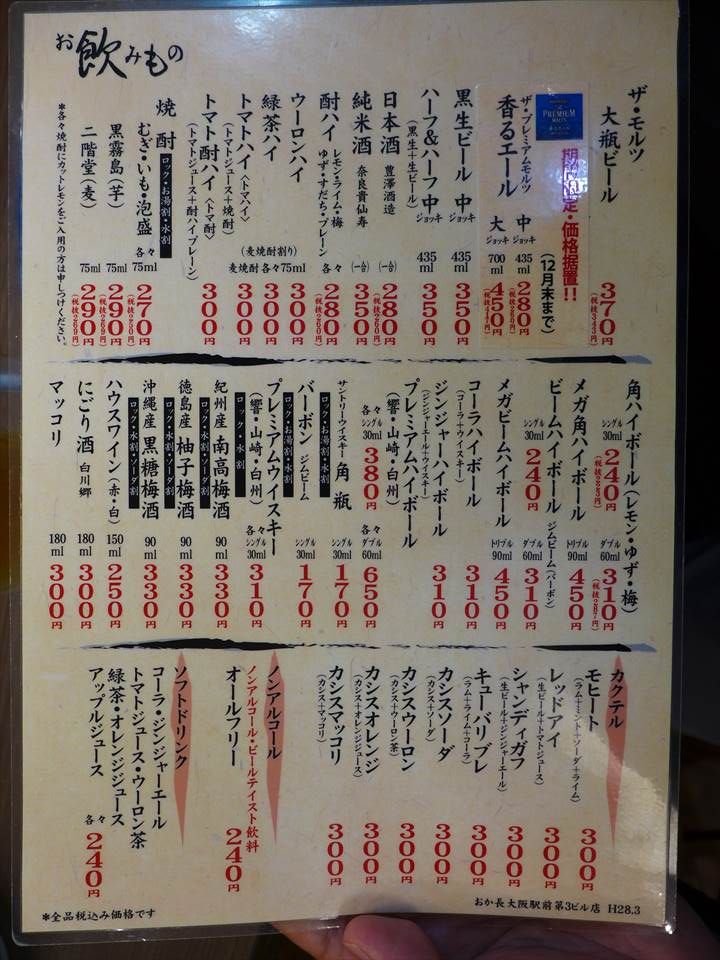 お飲みもの
ザ・モルツ
大瓶ビール
370円
(税抜343円)
PREMIUM
MALT'S
期間限定・価格据置!!
(12月末まで)
ザ・プレミアムモルツ
香るエール
中ジョッキ 435ml 280円
(税抜260円)
大ジョッキ 700ml 450円
(税抜417円)
黒生ビール 中ジョッキ 435ml 350円
ハーフ&ハーフ 中ジョッキ 435ml 350円
(黒生+生ビール)
日本酒 豊澤酒造 (一合) 280円
(税抜260円)
純米酒 奈良貴仙寿 (一合) 350円
酎ハイ レモン・ライム・梅 ゆず・すだち・プレーン 各々 280円
(税抜260円)
ウーロンハイ 300円
緑茶ハイ 300円
(麦焼酎割り)
麦焼酎 各々75ml
トマトハイ〈トマハイ〉 300円
(トマトジュース+焼酎)
トマト酎ハイ〈トマ酎〉 300円
(トマトジュース+酎ハイプレーン)
焼酎 ロック・お湯割・水割
むぎ・いも・泡盛 各々75ml 270円
(税抜250円)
黒霧島(芋) 75ml 290円
(税抜269円)
二階堂(麦) 75ml 290円
(税抜269円)
*各々焼酎にカットレモンをご入用の方は申しつけください。
角ハイボール(レモン・ゆず・梅)
シングル30ml 240円
(税抜223円)
ダブル60ml 310円
(税抜287円)
メガ角ハイボール トリプル90ml 450円
ビームハイボール ジムビーム(バーボン)
シングル30ml 240円
ダブル60ml 310円
メガビームハイボール トリプル90ml 450円
コーラハイボール 310円
(コーラ+ウイスキー)
ジンジャーハイボール 310円
(ジンジャーエール+ウイスキー)
プレミアムハイボール
(響・山崎・白州)
各々シングル30ml 380円
各々ダブル60ml 650円
サントリーウイスキー 角瓶 シングル30ml 170円
ロック・お湯割・水割
バーボン ジムビーム シングル30ml 170円
ロック・お湯割・水割
プレミアムウイスキー
(響・山崎・白州) 各々シングル30ml 310円
ロック・水割
紀州産 南高梅酒 90ml 330円
ロック・水割・ソーダ割
徳島産 柚子梅酒 90ml 330円
ロック・水割・ソーダ割
沖縄産 黒糖梅酒 90ml 330円
ロック・水割・ソーダ割
ハウスワイン(赤・白) 150ml 250円
にごり酒 白川郷 180ml 300円
マッコリ 180ml 300円
カクテル
モヒート 300円
(ラム+ミント+ソーダ+ライム)
レッドアイ 300円
(生ビール+トマトジュース)
シャンディガフ 300円
(生ビール+ジンジャーエール)
キューバリブレ 300円
(ラム+ライム+コーラ)
カシスソーダ 300円
(カシス+ソーダ)
カシスウーロン 300円
(カシス+ウーロン茶)
カシスオレンジ 300円
(カシス+オレンジジュース)
カシスマッコリ 300円
(カシス+マッコリ)
ノンアルコール
ノンアルコール・ビールテイスト飲料
オールフリー 240円
ソフトドリンク
コーラ・ジンジャーエール
トマトジュース・ウーロン茶
緑茶・オレンジジュース
アップルジュース
各々 240円
おか長大阪駅前第3ビル店 H28.3
*全品税込み価格です